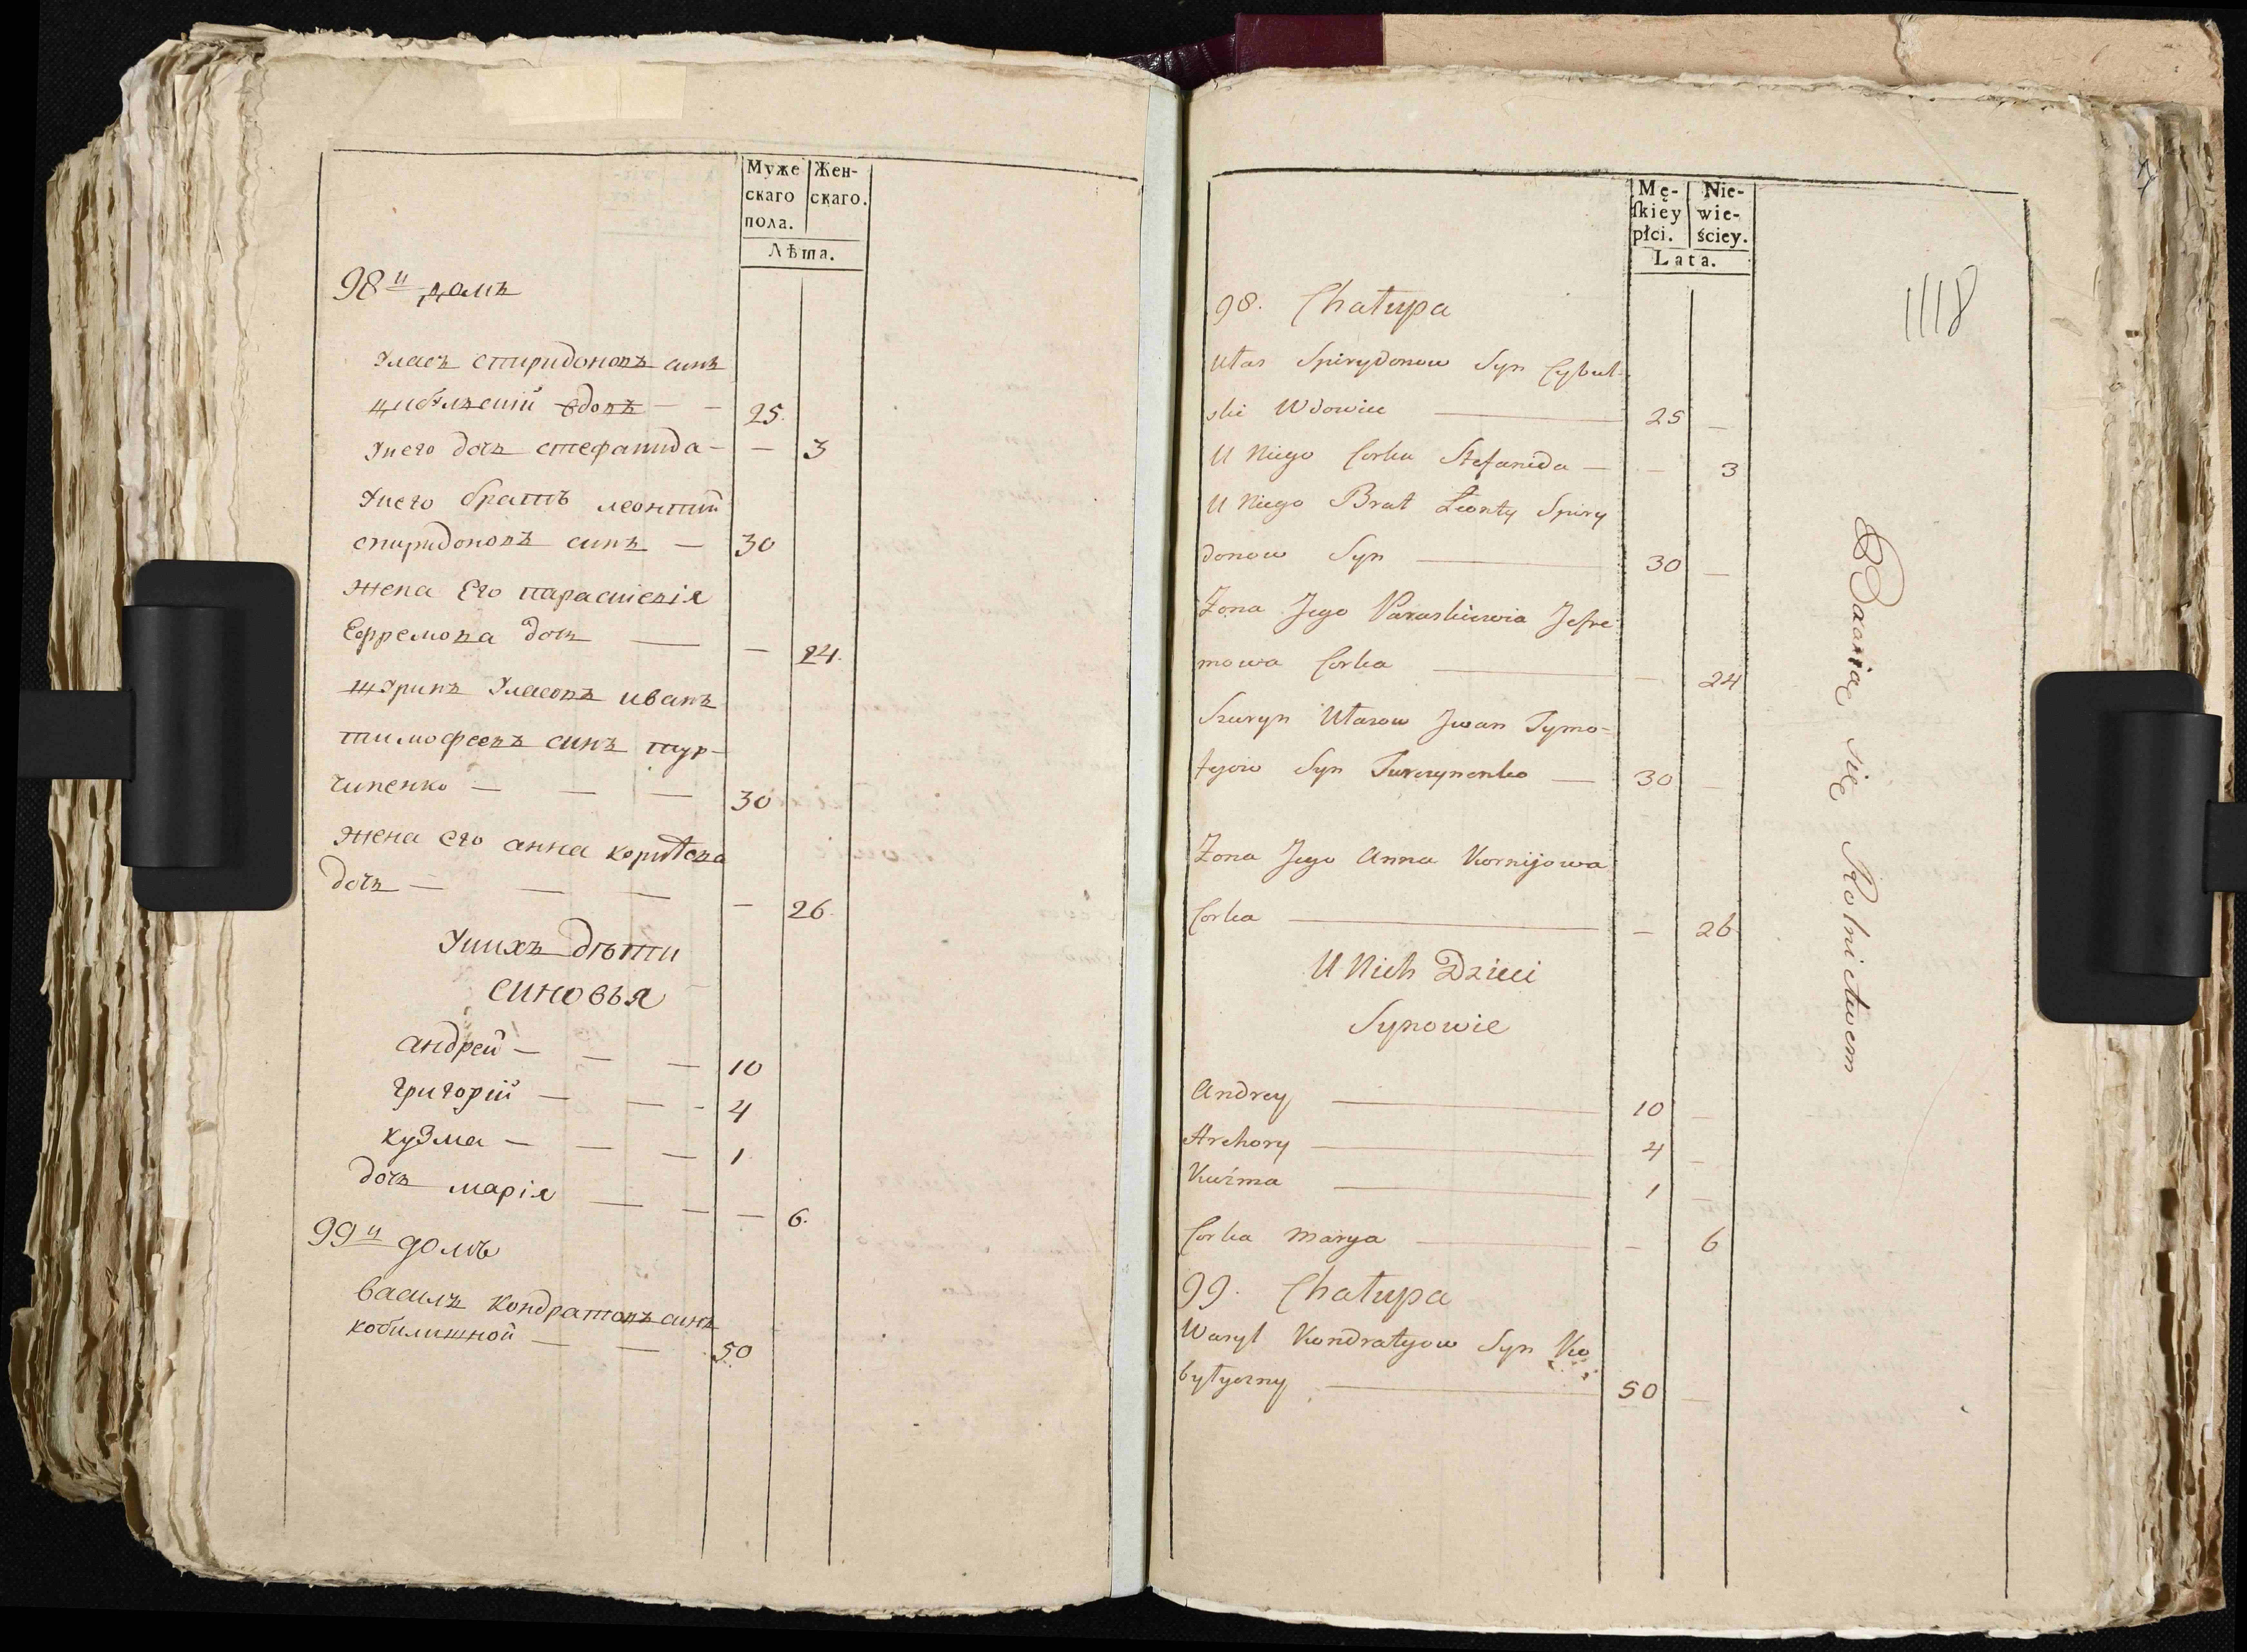 Муже Жен-
скаго скаго.
пола.
Лѣта.
98й домъ
Уласъ спиридоновъ синъ
цибулский вдовъ — — 25.
Унего дочъ стефанида — — 3
Унего братъ леонтий
спиридоновъ синъ — 30
жена Его параскевія
Ефремова дочъ — — 24.
шуринъ Уласовъ иванъ
тимофеевъ синъ тур-
чиненко — — — 30
жена его анна корнѣева
дочъ — — — — 26.
Унихъ дѣти
синовья
андрей — — — 10
григорий — — - 4
кузма — — — 1
дочъ марія — — — 6.
99й домъ
василъ кондратовъ синъ
кобилишной — — 50
Mę- Nie-
ſkiey wie-
płci. ściey.
Lata.
1118
98. Chałupa
Ułas Spirydonow Syn Cybul-
ski Wdowiec — 25 —
U Niego Corka Stefanida — — 3
U Niego Brat Leonty Spiry
donow Syn — 30 —
Żona Jego Paraskiewia Jefre
mowa Corka — — 24
Szuryn Ułasow Jwan Tymo-
fejow Syn Turczynenko — 30 —
Żona Jego Anna Kornijowa
Corka — — 26
U Nich Dzieci
Synowie
Andrey — 10 —
Hrehory — 4 —
Kuźma — 1 —
Corka Marya — — 6
99. Chałupa
Wasyl Kondratyow Syn Ko
byłyczny — 50 —
Bawią się Rolnictwem